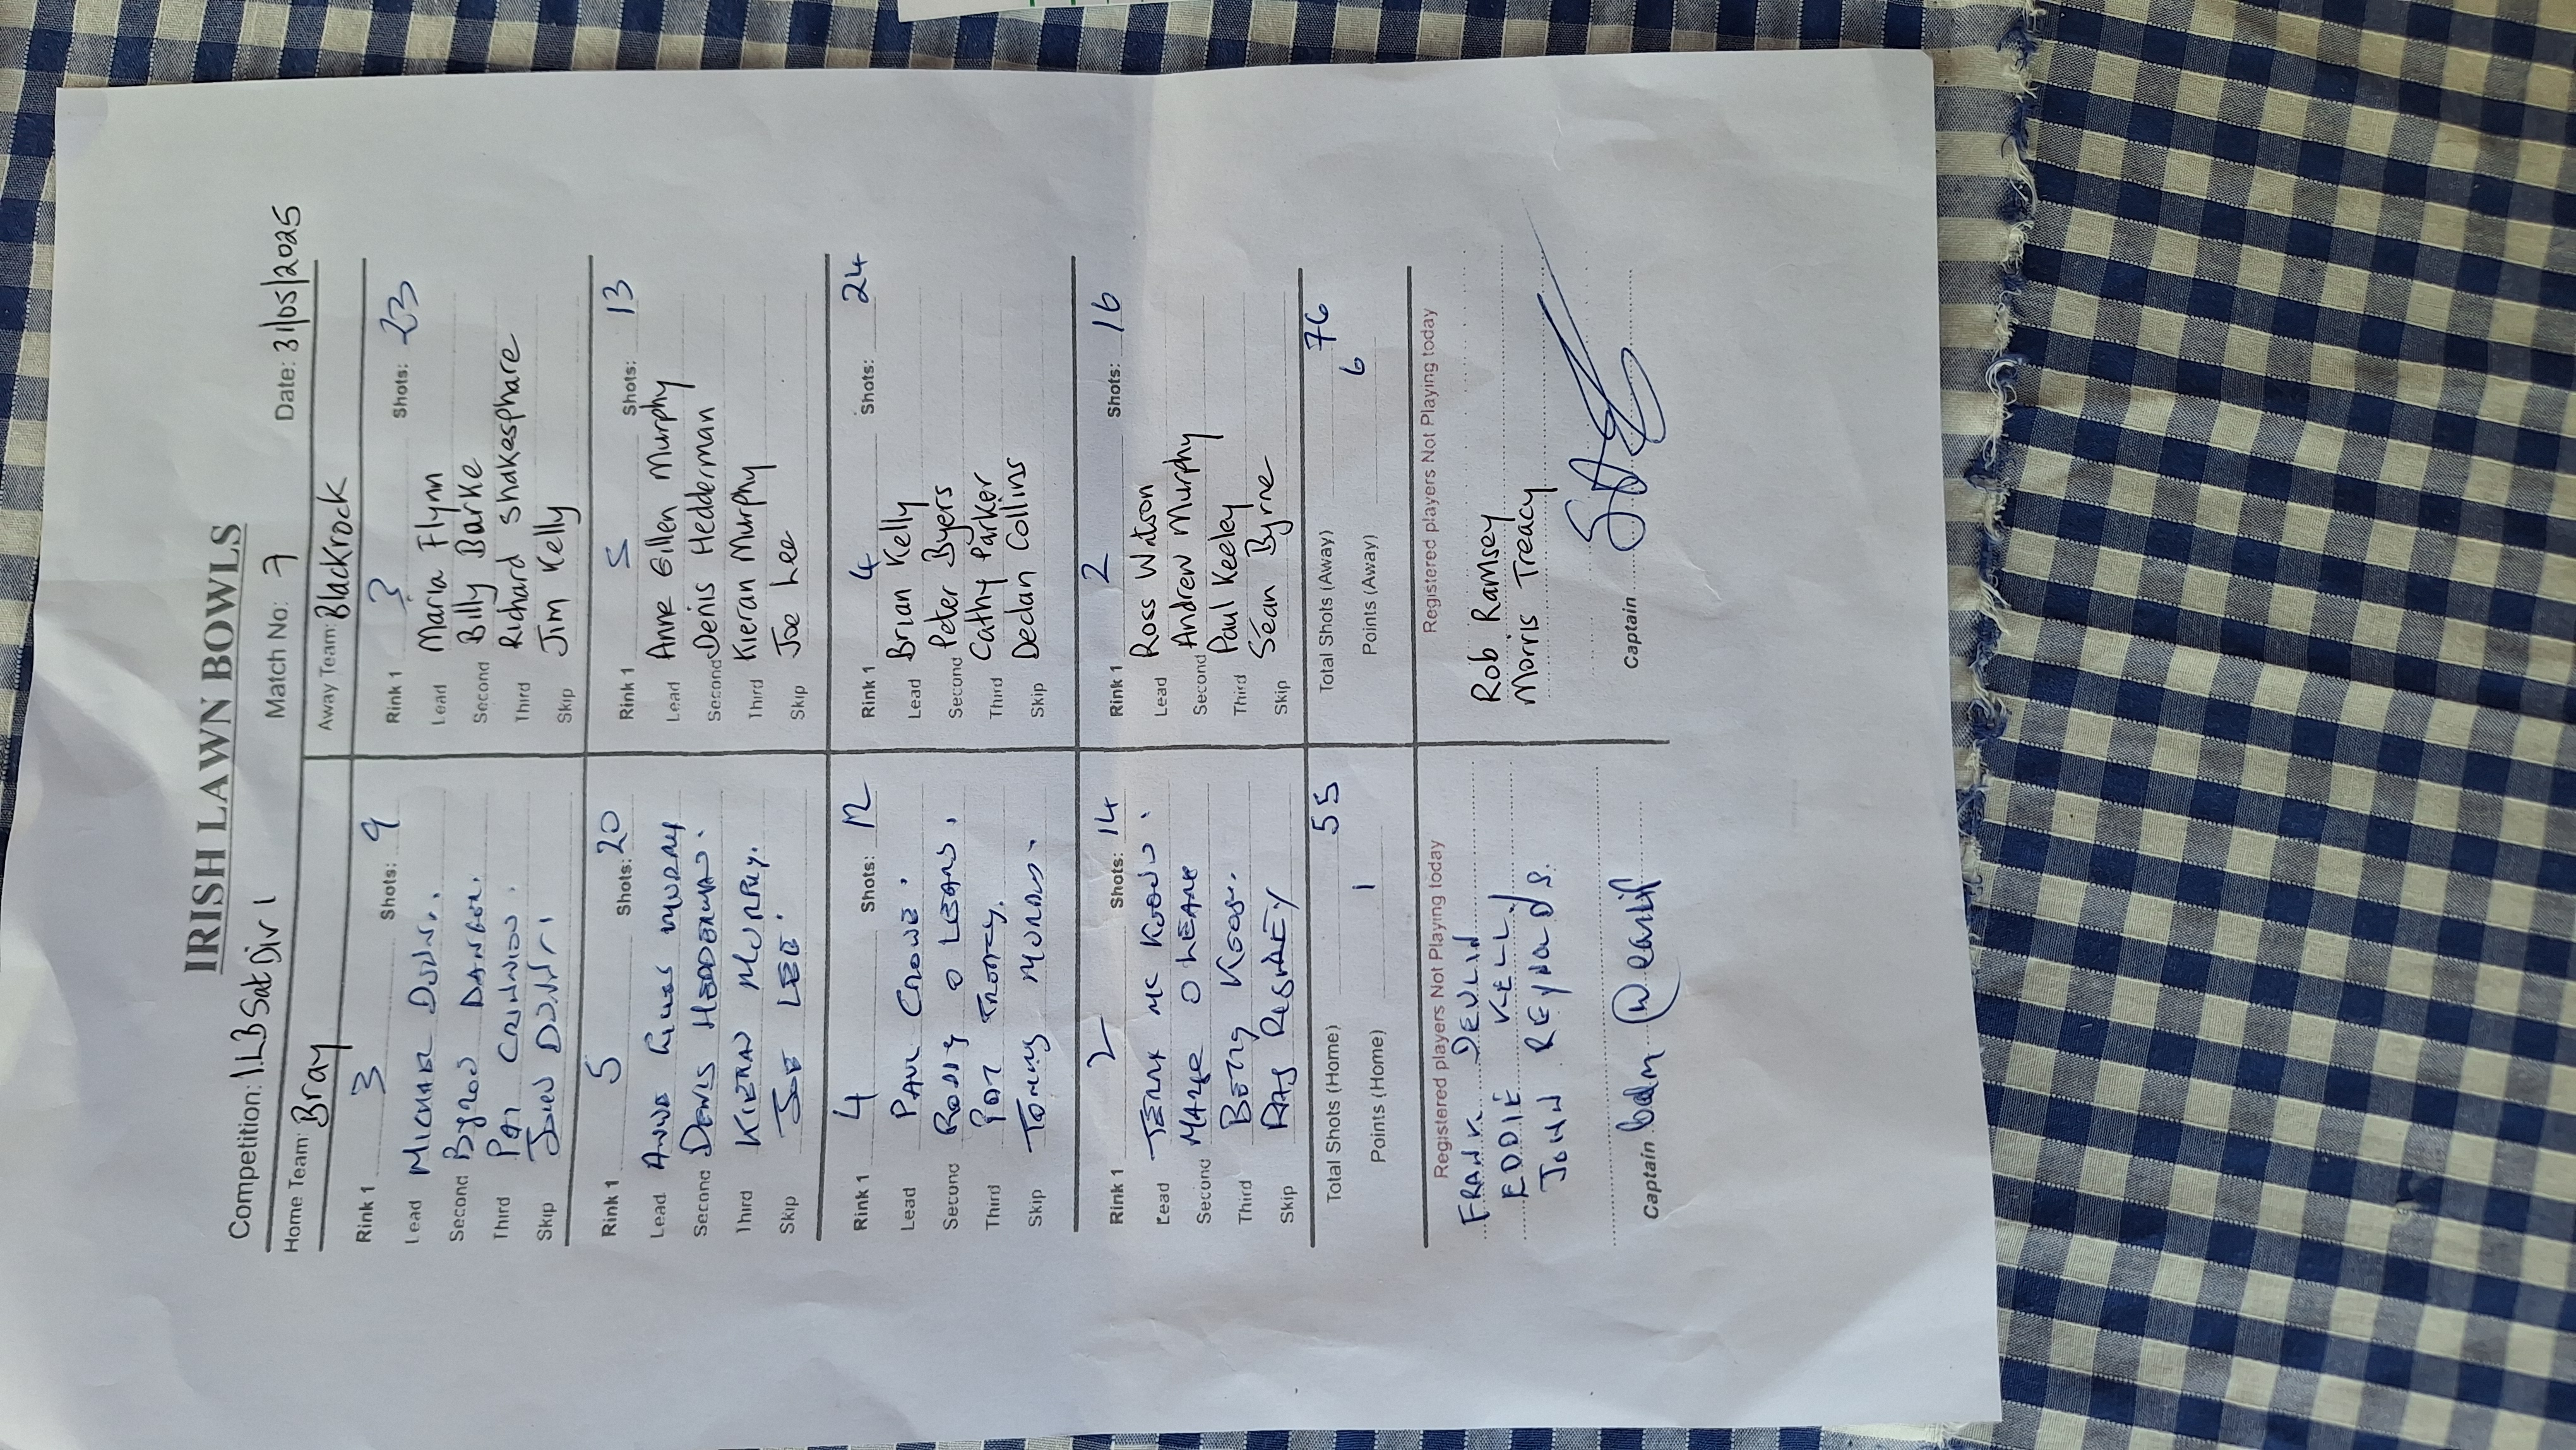 IRISH LAWN BOWLS
Competition: I.L.B Sat Div 1 Match No: 7 Date: 31/05/2025
Home Team: Bray
Rink 1 3 Shots: 9
Lead MICHAEL DUNN.
Second Byron
Third Pat
Skip JOHN DUNN
Rink 1 5 Shots: 20
Lead ANNE MURRAY
Second DENIS HEDDERMAN.
Third KIERAN MURPHY.
Skip JOE LEE.
Rink 1 4 Shots: 12
Lead PAUL CROWE.
Second O LEARY.
Third PAT
Skip Tommy
Rink 1 2 Shots: 14
Lead MC KEOWN.
Second O LEARY
Third BETTY KEOGH.
Skip
Total Shots (Home) 55
Points (Home) 1
Registered players Not Playing today
FRANK DEVLIN
EDDIE KELLY
JOHN REYNOLDS.
Captain
Away Team: Blackrock
Rink 1 3 Shots: 23
Lead Maria Flynn
Second Billy Barke
Third Richard Shakesphare
Skip Jim Kelly
Rink 1 5 Shots: 13
Lead Anne Gillen Murphy
Second Denis Hedderman
Third Kieran Murphy
Skip Joe Lee
Rink 1 4 Shots: 24
Lead Brian Kelly
Second Peter Byers
Third Cathy Parker
Skip Declan Collins
Rink 1 2 Shots: 16
Lead Ross Watson
Second Andrew Murphy
Third Paul Keeley
Skip Séan Byrne
Total Shots (Away) 76
Points (Away) 6
Registered players Not Playing today
Rob Ramsey
Morris Treacy
Captain